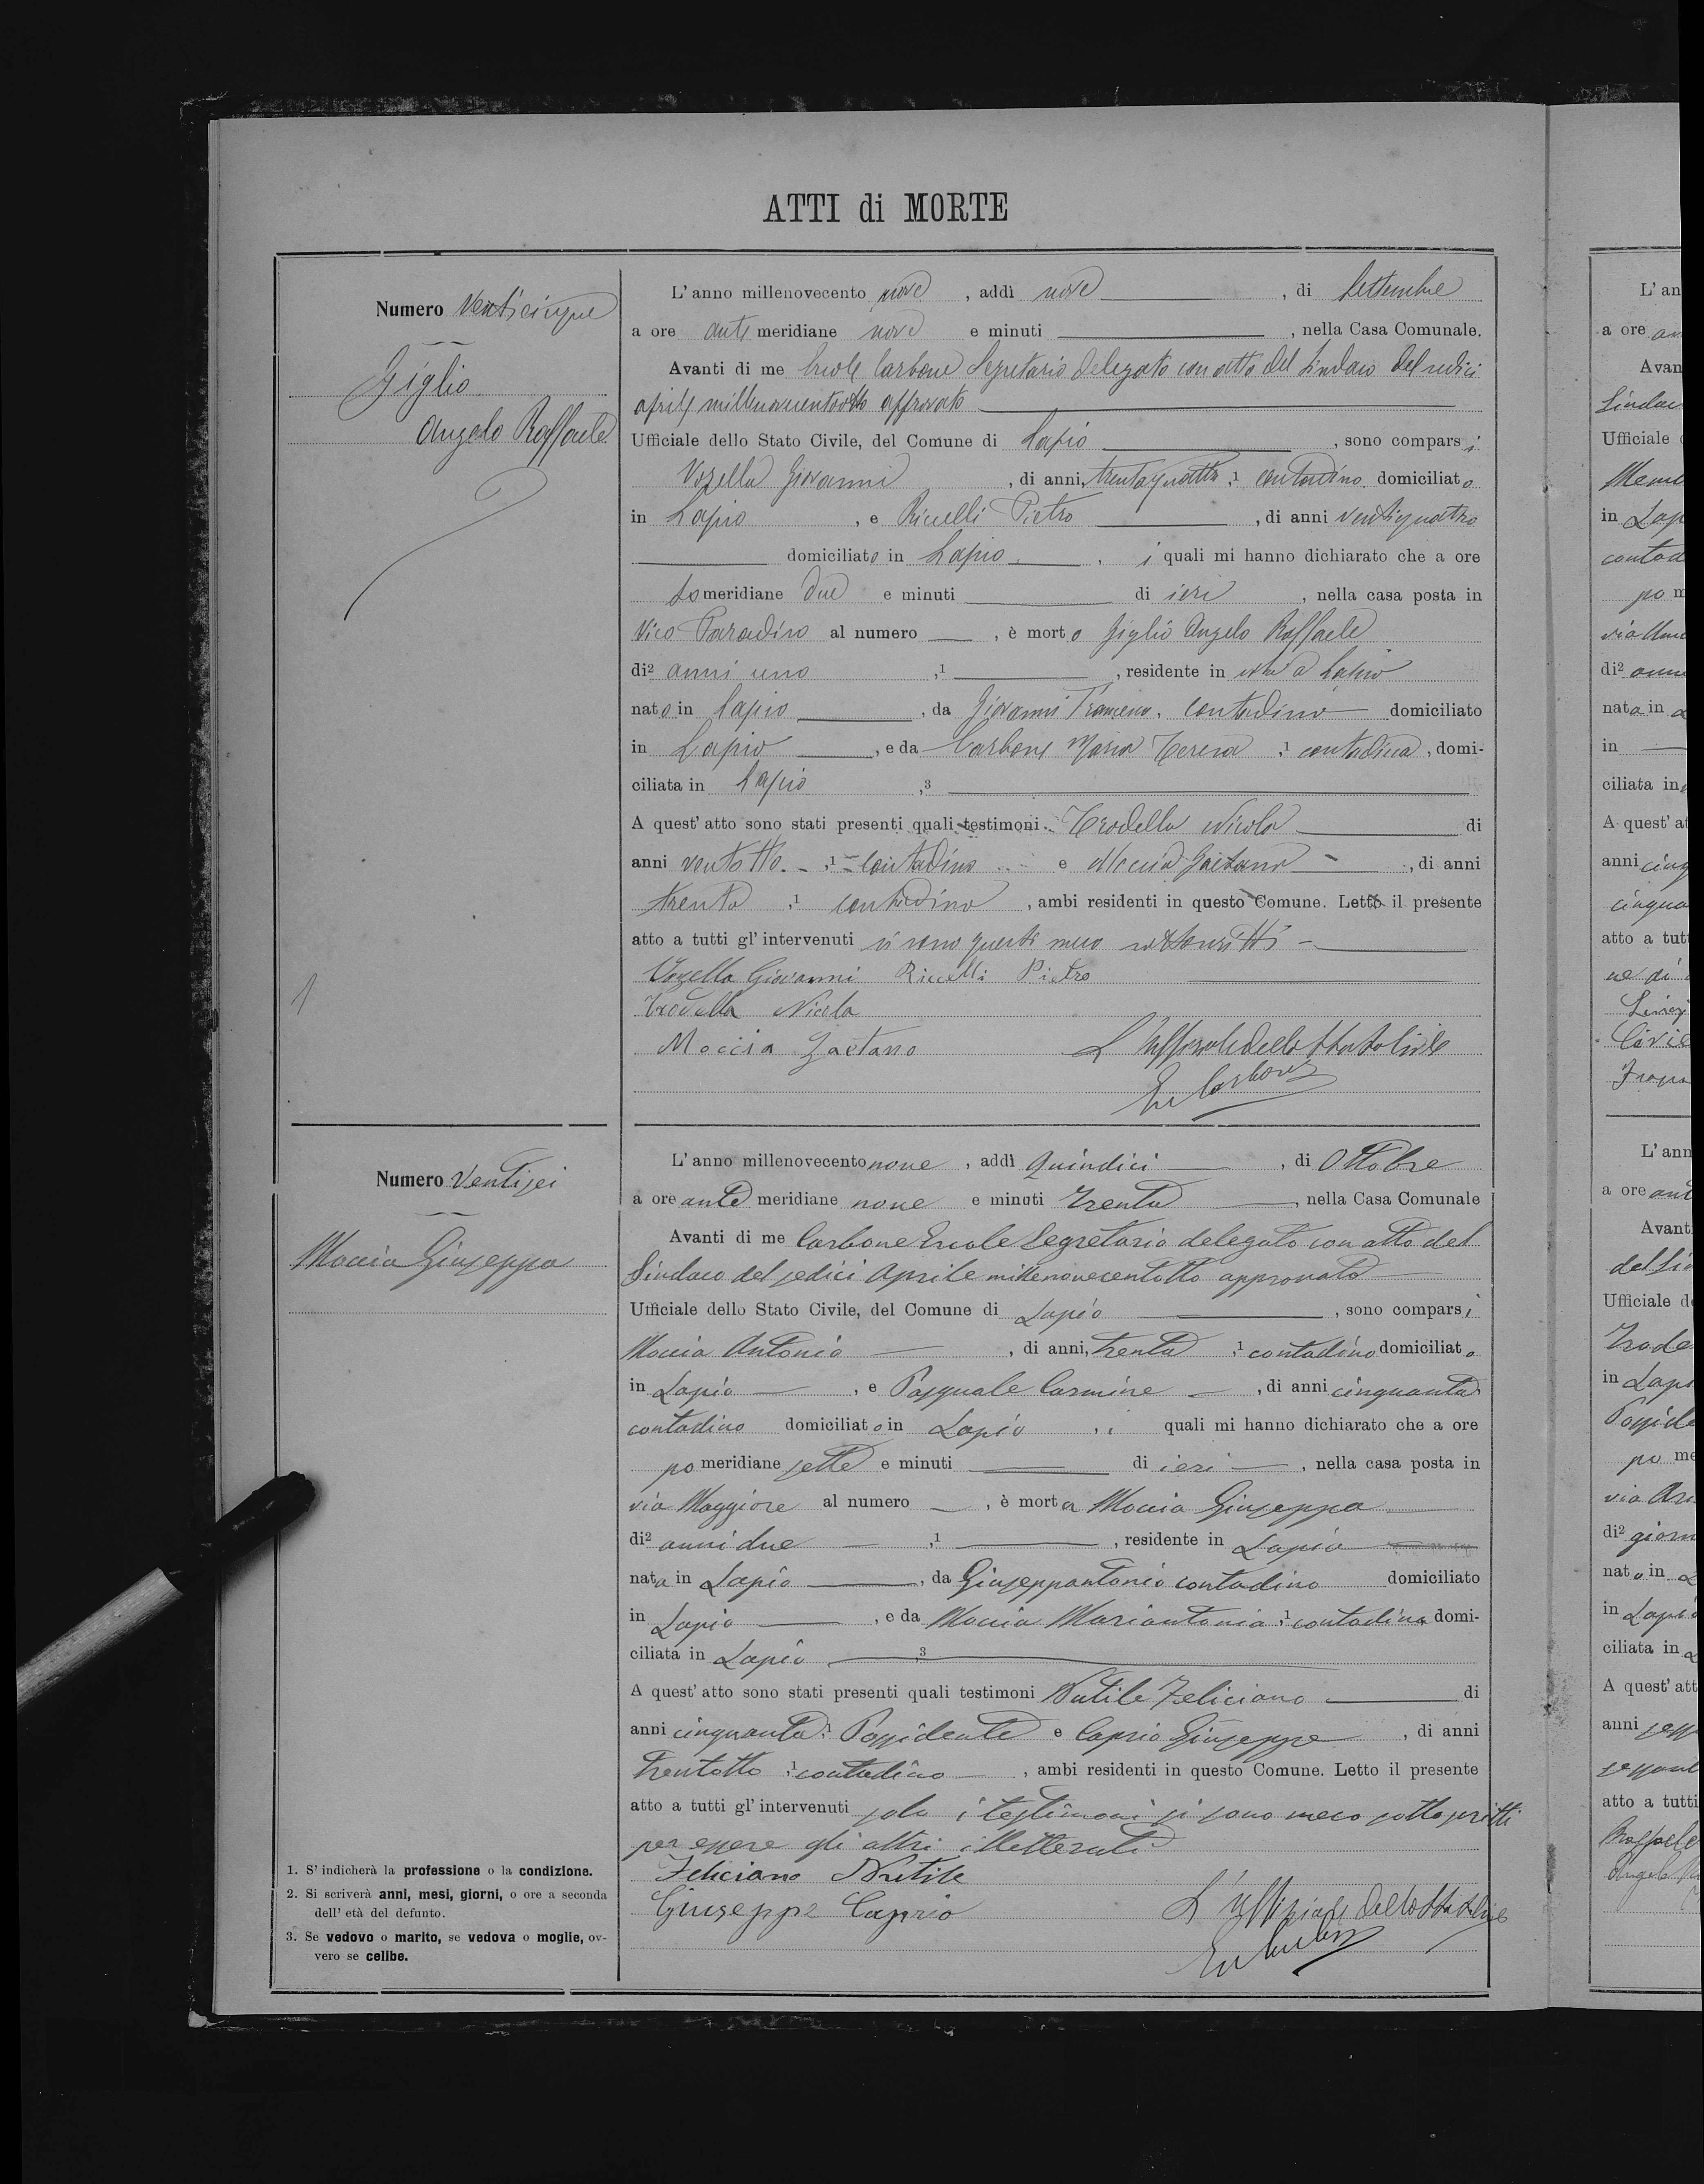 ATTI di MORTE
Numero Venticinque
Giglio
Angelo Raffaele
1
L'anno millenovecento nove, addì nove, di Settembre
a ore anti meridiane nove e minuti, nella Casa Comunale.
Avanti di me Ercole Carbone Segretario delegato con atto del Sindaco del sedici
aprile millenovecentootto approvato
Ufficiale dello Stato Civile, del Comune di Lapio, sono comparsi
Vozella Giovanni, di anni, trentaquattro,1 contadino domiciliato
in Lapio, e Riccelli Pietro, di anni ventiquattro
domiciliato in Lapio, i quali mi hanno dichiarato che a ore
meridiane due e minuti di ieri, nella casa posta in
Vico Paradiso al numero, è morto Giglio Angelo Raffaele
di2 anni uno,1, residente in Lapio
nato in Lapio, da Giovanni contadino domiciliato
in Lapio, e da Carbone Maria Teresa,1 contadina, domi-
ciliata in Lapio,3
A quest'atto sono stati presenti quali testimoni Trodella Nicola di
anni ventotto,1 contadino e Moccia Gaetano, di anni
trenta,1 contadino, ambi residenti in questo Comune. Letto il presente
atto a tutti gl'intervenuti si sono questi meco sottoscritti
Vozella Giovanni Riccelli Pietro
Trodella Nicola
Moccia Gaetano L'Uffiziale dello Stato Civile
Er Carbone
Numero Ventisei
Moccia Giuseppa
L'anno millenovecento nove, addì Quindici, di Ottobre
a ore ante meridiane nove e minuti Trenta, nella Casa Comunale
Avanti di me Carbone Ercole Segretario delegato con atto del
Sindaco del sedici Aprile millenovecentotto approvato
Ufficiale dello Stato Civile, del Comune di Lapio, sono comparsi
Moccia Antonio, di anni, trenta,1 contadino domiciliato
in Lapio, e Pasquale Carmine, di anni cinquanta
contadino domiciliato in Lapio, i quali mi hanno dichiarato che a ore
po meridiane sette e minuti di ieri, nella casa posta in
via Maggiore al numero, è morta Moccia Giuseppa
di2 anni due,1, residente in Lapio
nata in Lapio, da Giuseppantonio contadino domiciliato
in Lapio, e da Moccia Mariantonia,1 contadina domi-
ciliata in Lapio,3
A quest'atto sono stati presenti quali testimoni Nutile Feliciano di
anni cinquanta,1 Possidente e Caprio Giuseppe, di anni
trentotto,1 contadino, ambi residenti in questo Comune. Letto il presente
atto a tutti gl'intervenuti solo i testimoni si sono meco sottoscritti
per essere gli altri illetterati
Feliciano Nutile
Giuseppe Caprio L'Uffiziale dello Stato Civile
1. S'indicherà la professione o la condizione.
2. Si scriverà anni, mesi, giorni, o ore a seconda
dell'età del defunto.
3. Se vedovo o marito, se vedova o moglie, ov-
vero se celibe.
L'an
a ore
Avan
Sindac
Ufficiale
in Lap
contad
po m
di2
nata in
in
ciliata in
A quest'at
anni cinq
cinqua
atto a tut
Civil
L'ann
a ore ant
Avant
del Si
Ufficiale d
Trode
in Lapi
Posside
po me
via
di2 giorn
nato in
in Lapio
ciliata in
A quest'att
anni
atto a tutti
Raffaele
Angelo